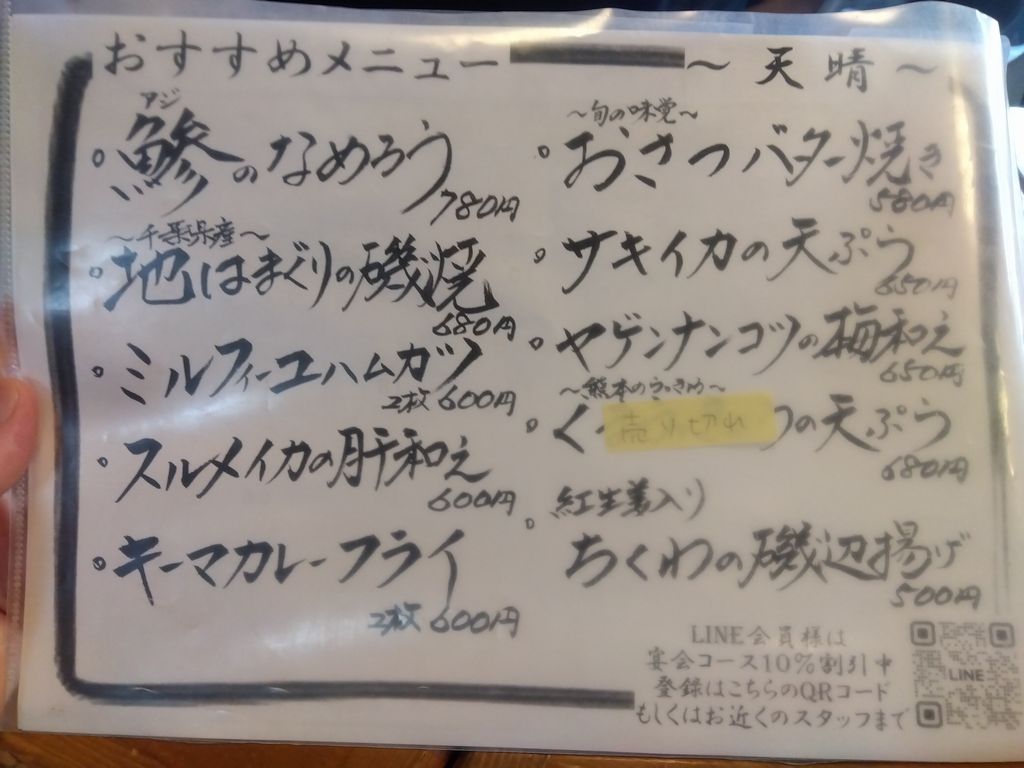 おすすめメニュー
～天晴～
アジ
鯵のなめろう
780円
～千葉県産～
地はまぐりの磯焼
680円
ミルフィーユハムカツ
2枚 600円
スルメイカの肝和え
600円
キーマカレーフライ
2枚 600円
～旬の味覚～
おさつバター焼き
580円
サキイカの天ぷら
650円
ヤゲンナンコツの梅和え
650円
～熊本の
く
売り切れ
の天ぷら
680円
紅生姜入り
ちくわの磯辺揚げ
500円
LINE会員様は
宴会コース10%割引中
登録はこちらのQRコード
もしくはお近くのスタッフまで
LINE